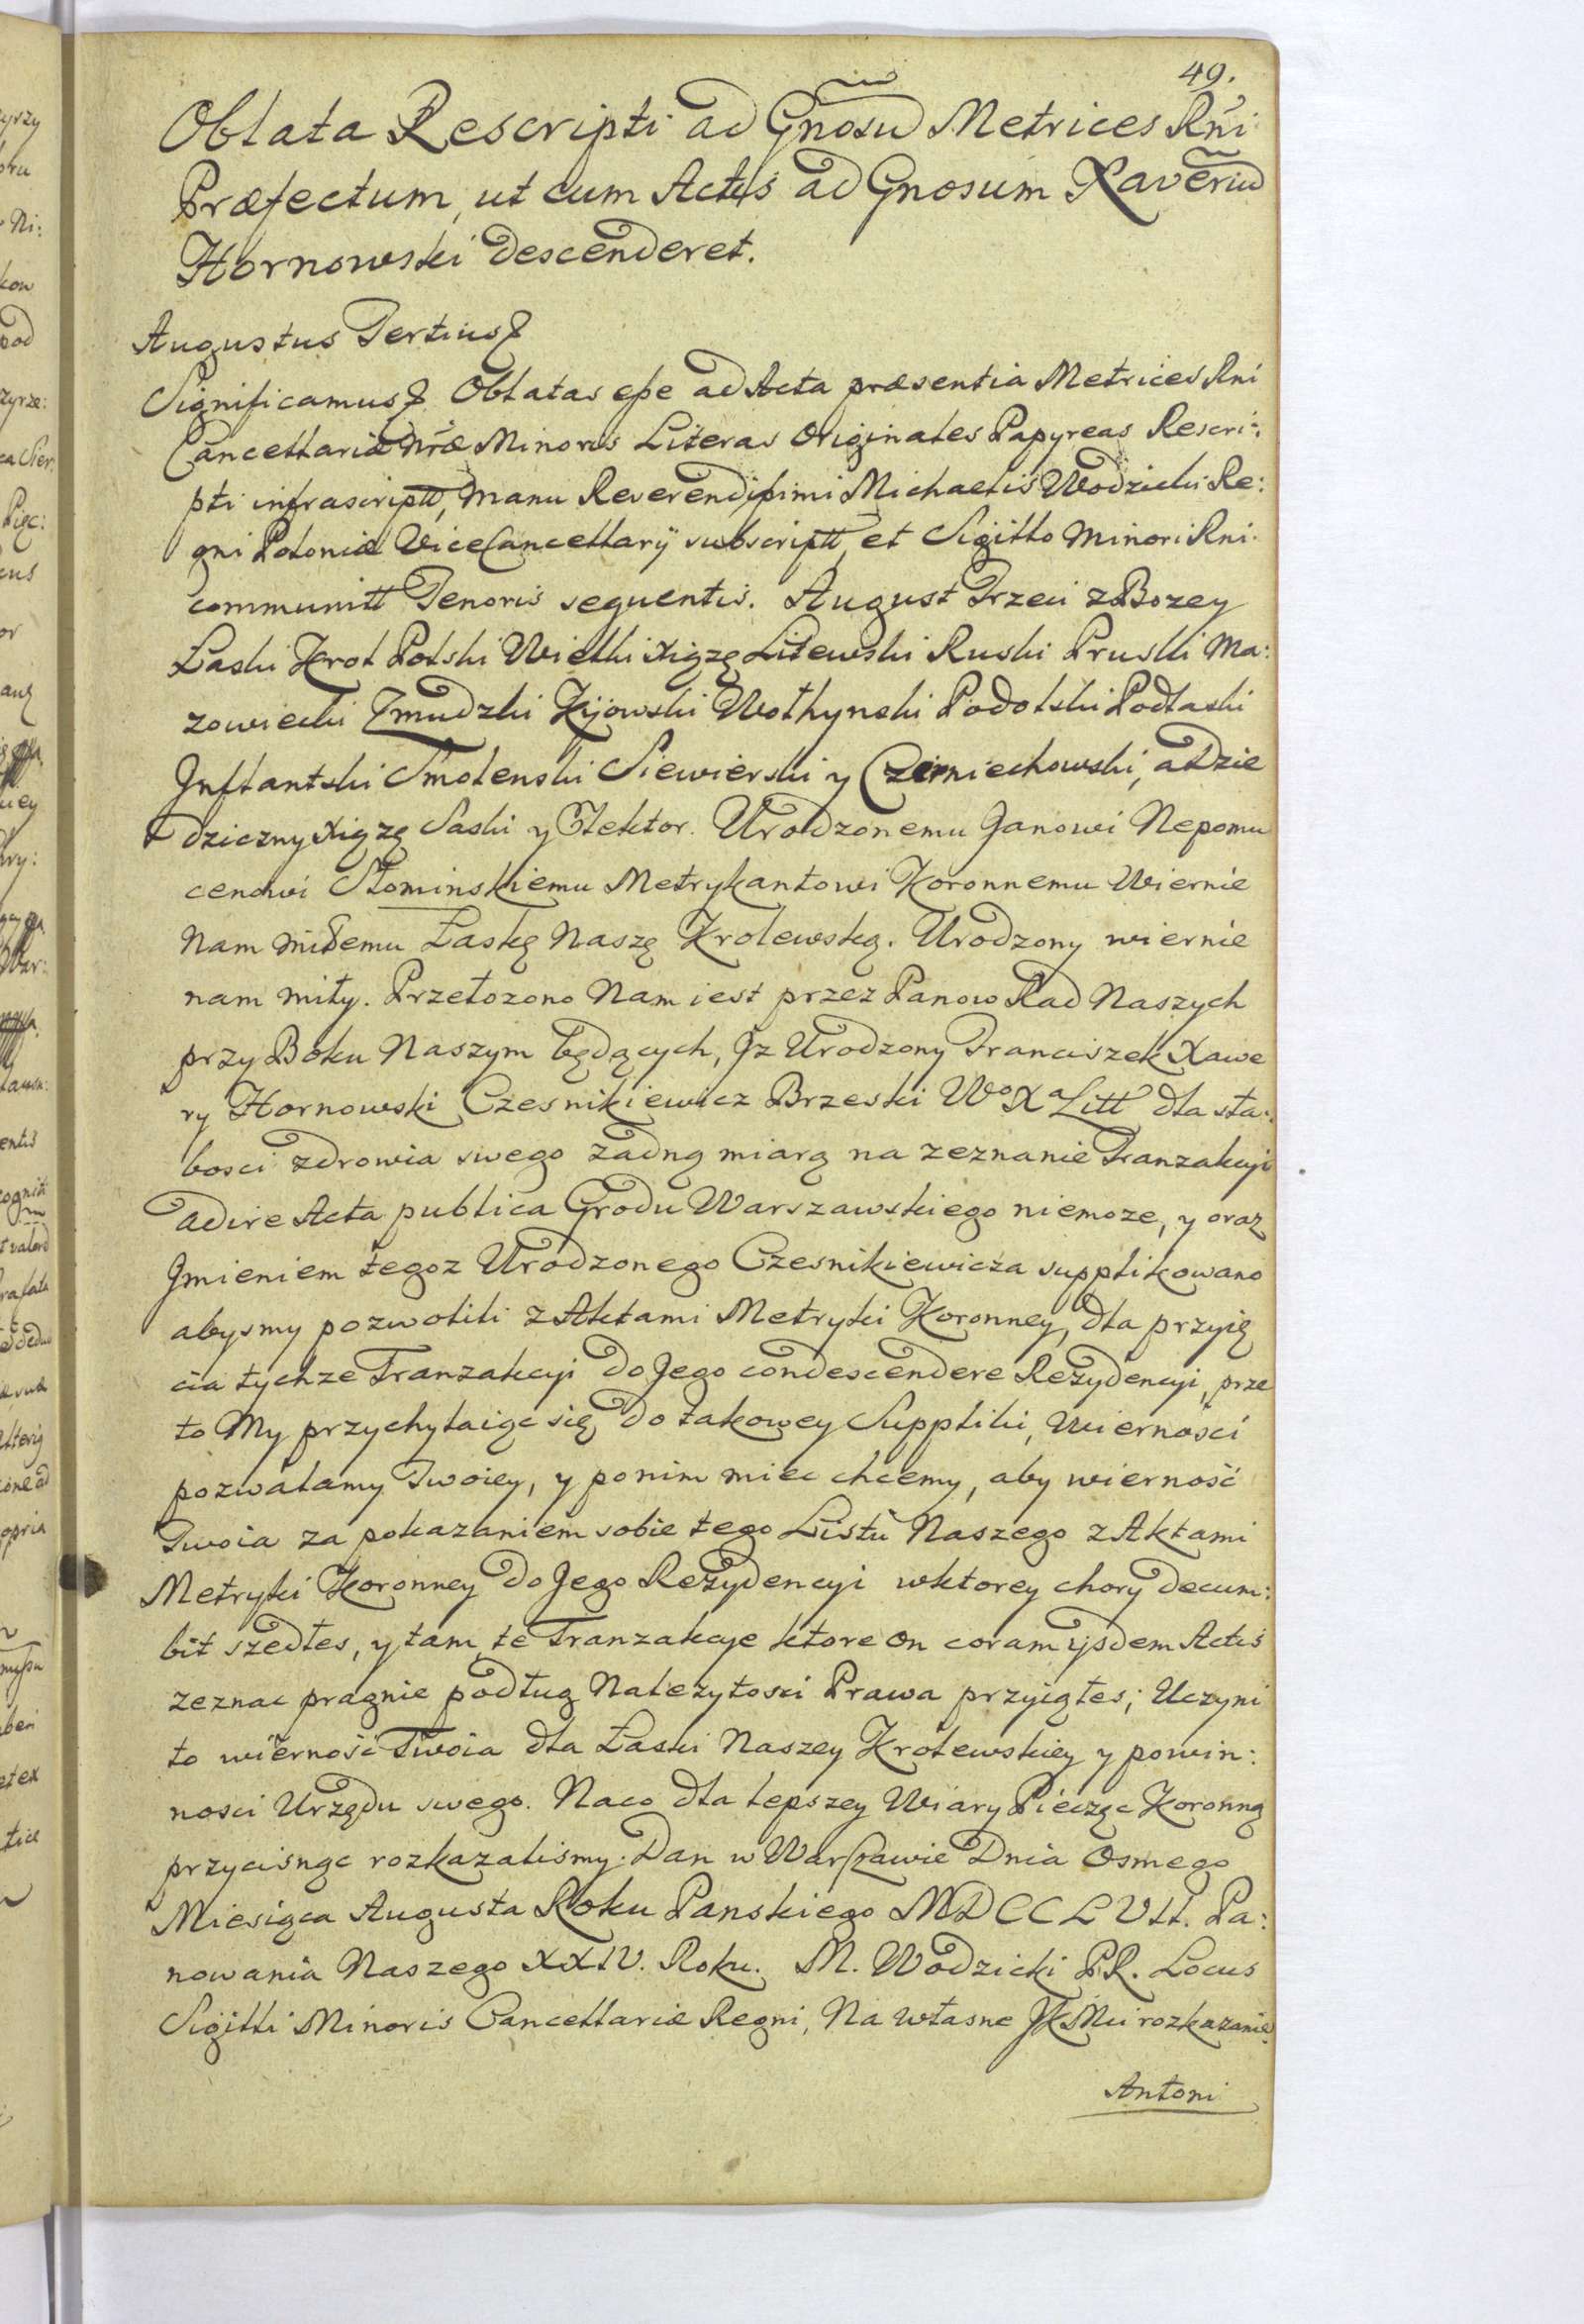 49.
Oblata Rescripti ad Gnosũ Metrices Rńi
Præfectum, ut cum Actis ad Gnosum Xaveriũ
Hornowski descenderet.
Augustus Tertius
Significamus Oblatas eſse ad Acta præsentia Metrices Rni
Cancellariæ Nræ Minoris Literas Originales Papyreas Rescri:
pti infrascriptt, manu Reverendiſsimi Michaelis Wodzicki Re:
gni Poloniæ ViceCancellarÿ subscriptt, et Sigillo Minori Rni
communitt Tenoris sequentis. August Trzeci z Bozey
Łaski Krol Polski Wielki Xiązę Litewski Ruski Pruski Ma:
zowiecki Zmudzki Kijowski Wołhynski Podolski Podlaski
Jnflantski Smolenski Siewierski y Czerniechowski, a Dzie
dziczny Xiązę Saski y Elektor. Urodzonemu Janowi Nepomu
cenowi Słominskiemu Metrykantowi Koronnemu Wiernie
Nam miłemu Łaskę Naszę Krolewską. Urodzony wiernie
nam miły. Przełozono Nam iest przez Panow Rad Naszych
przy Boku Naszym będących, Jz Urodzony Franciszek Xawe
ry Hornowski Czesnikiewicz Brzeski Wo Xa Litt dla sła:
bosci zdrowia swego żadną miarą na zeznanie Tranzakcyi
adire Acta publica Grodu Warszawskiego niemoze, y oraz
Jmieniem tegoz Urodzonego Czesnikiewicza supplikowano
abysmy pozwolili z Aktami Metryki Koronney, dla przyię
cia tychze Tranzakcyi do Jego condescendere Rezydencyi, prze
to My przychylaiąc się do takowey Suppliki, Wiernosci
pozwalamy Twoiey, y ponim miec chcemy, aby wierność
Twoia za pokazaniem sobie tego Listu Naszego z Aktami
Metryki Koronney do Jego Rezydencyi wktorey chory decum:
bit szedłes, y tam te Tranzakcye ktore on coram ijsdem Actis
zeznac pragnie podług Nalezytosci Prawa przyiąłes; Uczyni
to wierność Twoia dla Łaski Naszey Krolewskiey y powin:
nosci Urzędu swego. Naco dla lepszey Wiary Pieczęc Koronną
przycisnąc rozkazalismy. Dan w Warſzawie Dnia Osmego
Miesiąca Augusta Roku Panskiego MDCCLVII. Pa:
nowania Naszego XXIV. Roku. M. Wodzicki P.R. Locus
Sigilli Minoris Cancellariæ Regni, Na własne JKMci rozkazanie
Antoni